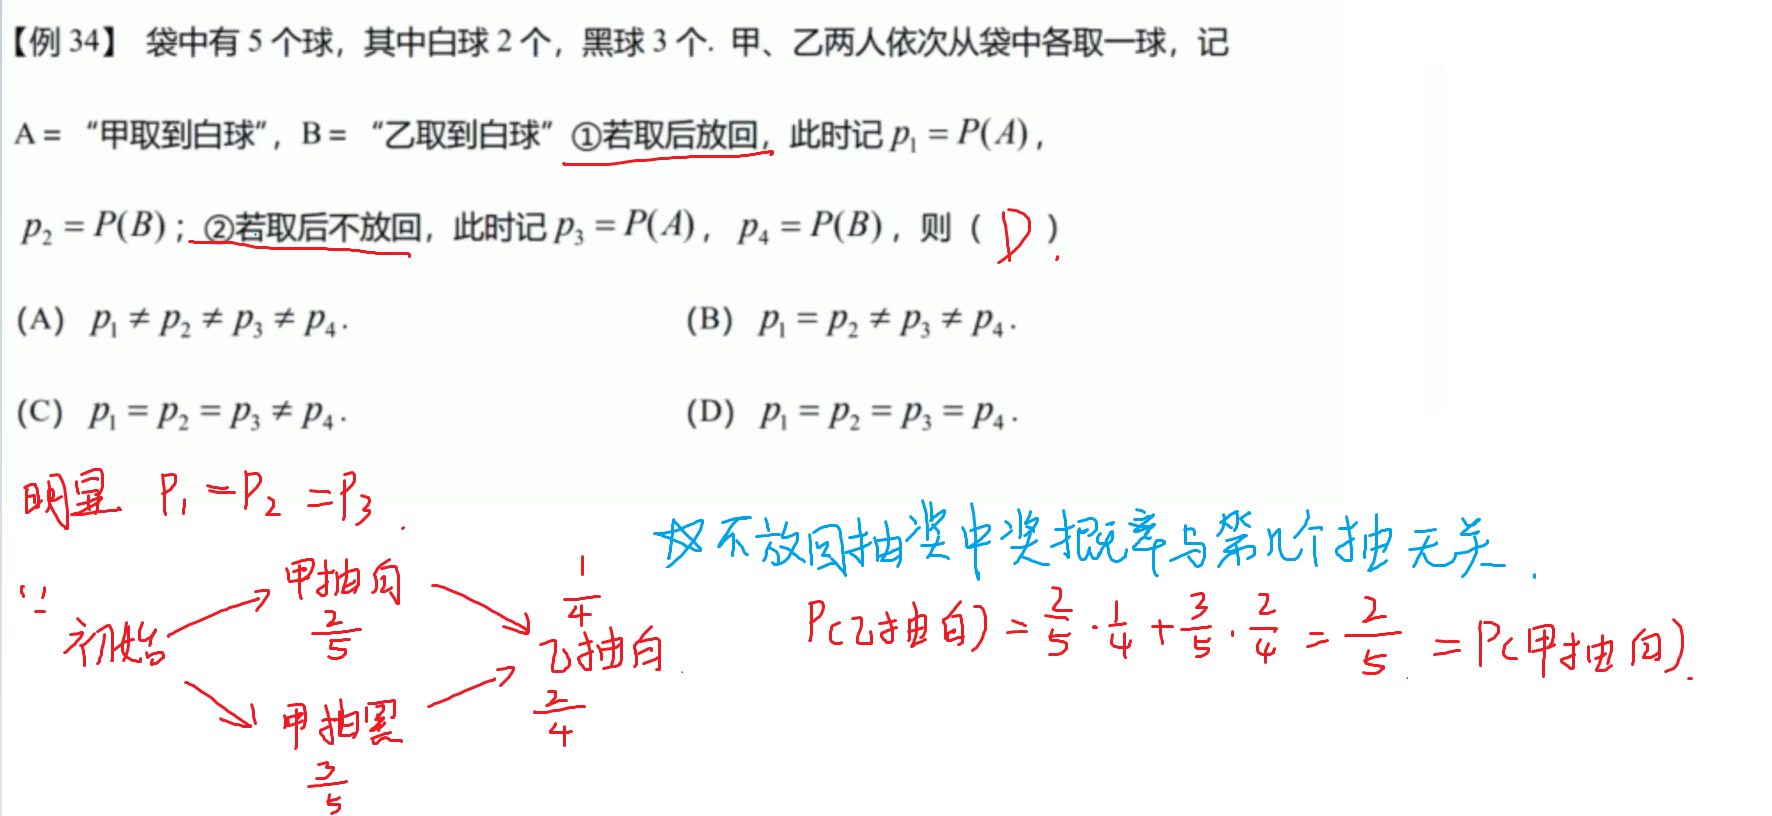 【例 34】 袋中有 5 个球，其中白球 2 个，黑球 3 个. 甲、乙两人依次从袋中各取一球，记
A = “甲取到白球”，B = “乙取到白球” ①若取后放回，此时记 p₁ = P(A)，
p₂ = P(B)；②若取后不放回，此时记 p₃ = P(A)， p₄ = P(B)，则（ D ）
(A) p₁ ≠ p₂ ≠ p₃ ≠ p₄.
(B) p₁ = p₂ ≠ p₃ ≠ p₄.
(C) p₁ = p₂ = p₃ ≠ p₄.
(D) p₁ = p₂ = p₃ = p₄.
明显 P₁ = P₂ = P₃.
☆不放回抽奖中奖概率与第几个抽无关.
∵
初始
甲抽白
2/5
甲抽黑
3/5
1/4
乙抽白.
2/4
P(乙抽白) = 2/5 · 1/4 + 3/5 · 2/4 = 2/5 = P(甲抽白).